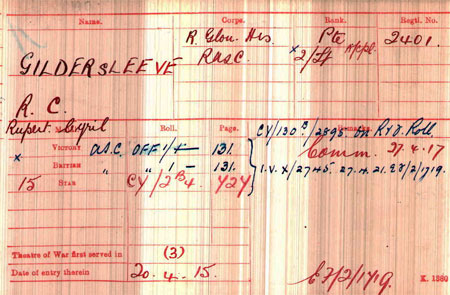 Name. Corps. Rank. Regtl. No.
R. Glou. Hrs Pte 2401.
GILDERSLEEVE R.A.S.C. x 2/Lt A/Cpl.
R. C.
Rupert Cyril
Roll. Page. Remarks
x VICTORY A.S.C. OFF 1/ 131. CY/130 /2895 on R & D. Roll
BRITISH " " 1 — 131. Comm. 27.4.17
15 STAR CY/2B4. Y2Y I.V.X/2745. 27.4.21.
Theatre of War first served in (3)
Date of entry therein 20. 4. 15. K. 1380